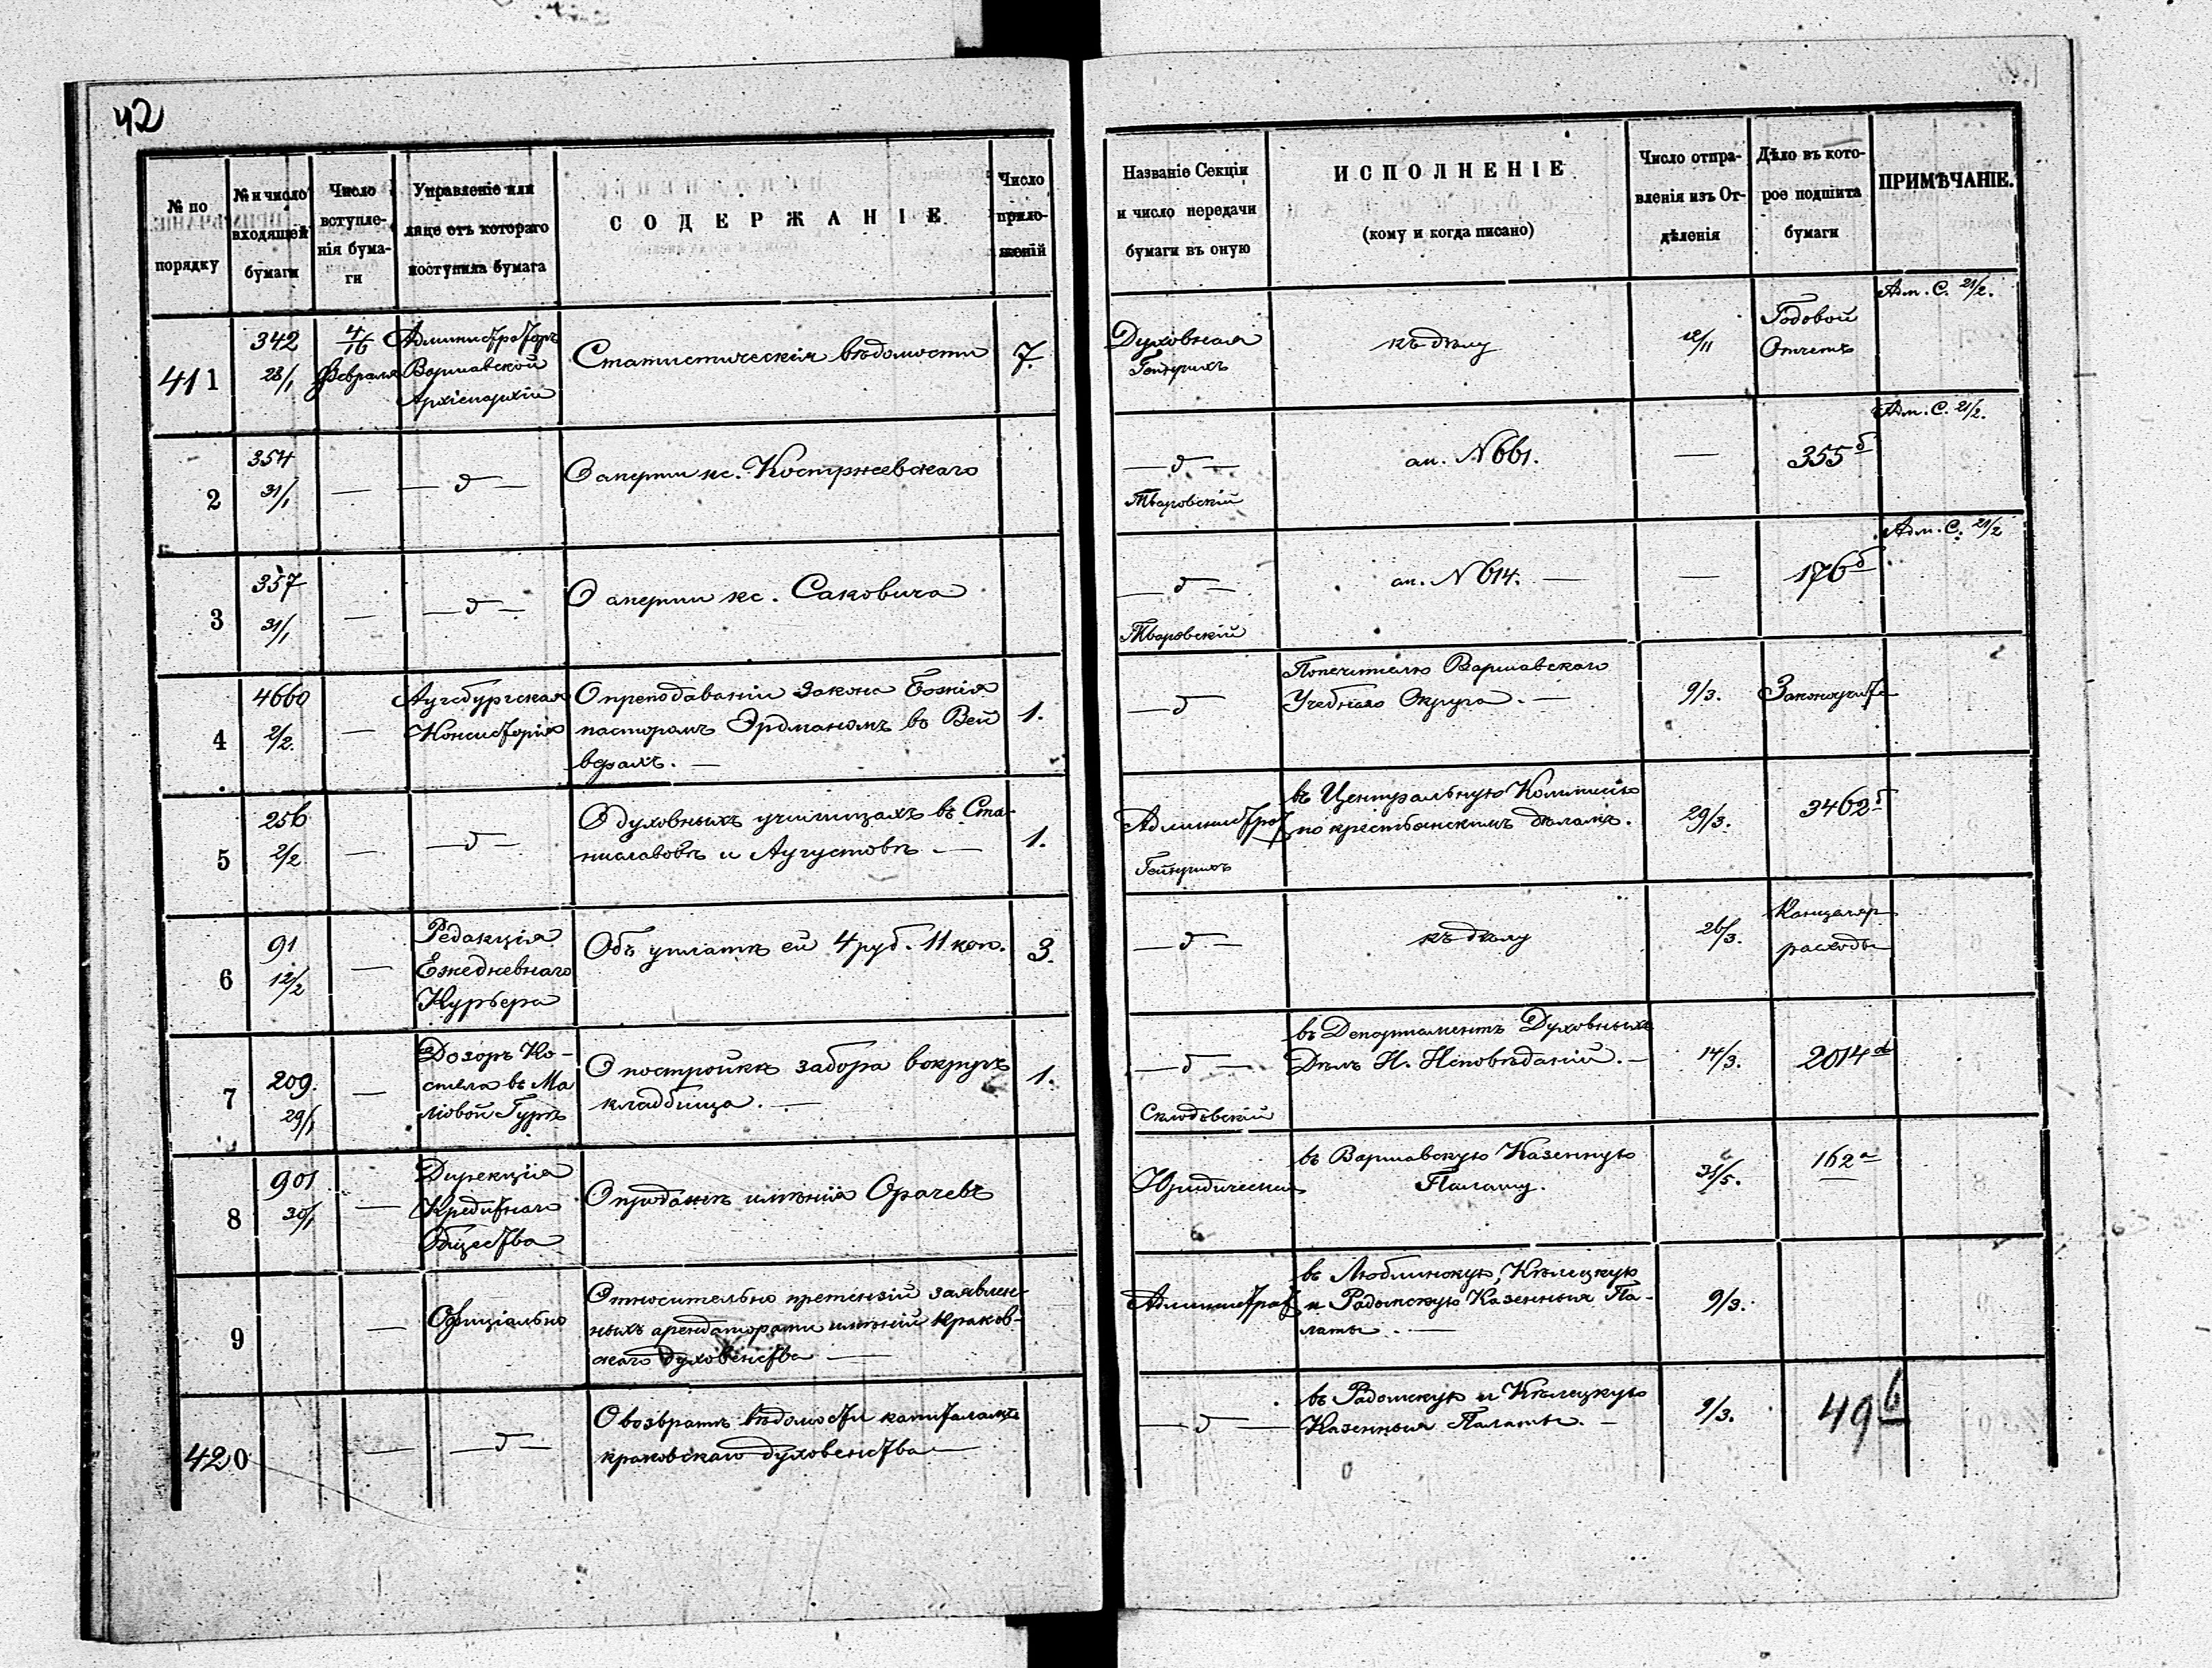 42
№ по порядку
№ и число входящей бумаги
Число вступленія бумаги
Управленіе или лице отъ котораго поступила бумага
СОДЕРЖАНІЕ
Число приложеній
Названіе Секціи и число передачи бумаги въ оную
ИСПОЛНЕНІЕ
(кому и когда писано)
Число отправленія изъ Отдѣленія
Дѣло въ которое подшита бумаги
ПРИМѢЧАНІЕ.
411
342
28/1
4/16 Февраля
Администраторъ
Варшавской
Архіепархіи
Статистическія вѣдомости
7.
Духовная
Гейнрихъ
къ дѣлу
12/11
Годовой
Отчетъ
Адм. С. 21/2.
2
354
31/1
—
— д —
О смерти кс. Костржевскаго
— д —
Тваровскій
ал. N 661.
—
355 б
Адм. С. 21/2.
3
357
31/1
—
— д —
О смерти кс. Саковича
— д —
Тваровскій
ал. N 614. —
—
176 б
Адм. С. 21/2
4
4660
2/2.
—
Аугсбургская
Консисторія
О преподаваніи Закона Божія
пасторомъ Эрдманомъ въ Вей
верахъ. —
1.
— д
Попечителю Варшавскаго
Учебнаго Округа. —
9/3.
Законоучит
5
256
2/2
—
— д —
О духовныхъ училищахъ въ Ста-
ниславовѣ и Аугустовѣ —
1.
Администрат
Гейнрихъ
въ Центральную Комиссію
по крестьянскимъ дѣламъ.
29/3.
3462 б
6
91.
12/2
—
Редакція
Ежедневнаго
Курьера
Объ уплатѣ ей 4 руб. 11 коп.
3.
— д —
къ дѣлу
26/3.
Канцеляр
расходы
7
209.
29/1
—
Дозоръ Ко-
стела въ Ма
ліовой Гурѣ
О постройкѣ забора вокругъ
кладбища. —
1.
— д —
Склодовскій
въ Департаментъ Духовныхъ
Дѣлъ И. Исповѣданій. —
14/3.
2014 d
8
901
30/1
—
Дирекція
Кредитнаго
Общества
О продажѣ имѣнія Орачевъ
Юридическая
въ Варшавскую Казенную
Палату.
31/5.
162 а
9
—
Офиціально
Относительно претензій заявлен-
ныхъ арендаторами имѣній Краков-
скаго духовенства —
Администрат
въ Люблинскую, Кѣлецкую
и Радомскую Казенныя Па-
латы. —
9/3.
420
—
— д —
О возвратѣ вѣдомости капиталамъ
краковскаго духовенства —
— д —
въ Радомскую и Кѣлецкую
Казенныя Палаты. —
9/3.
49 b